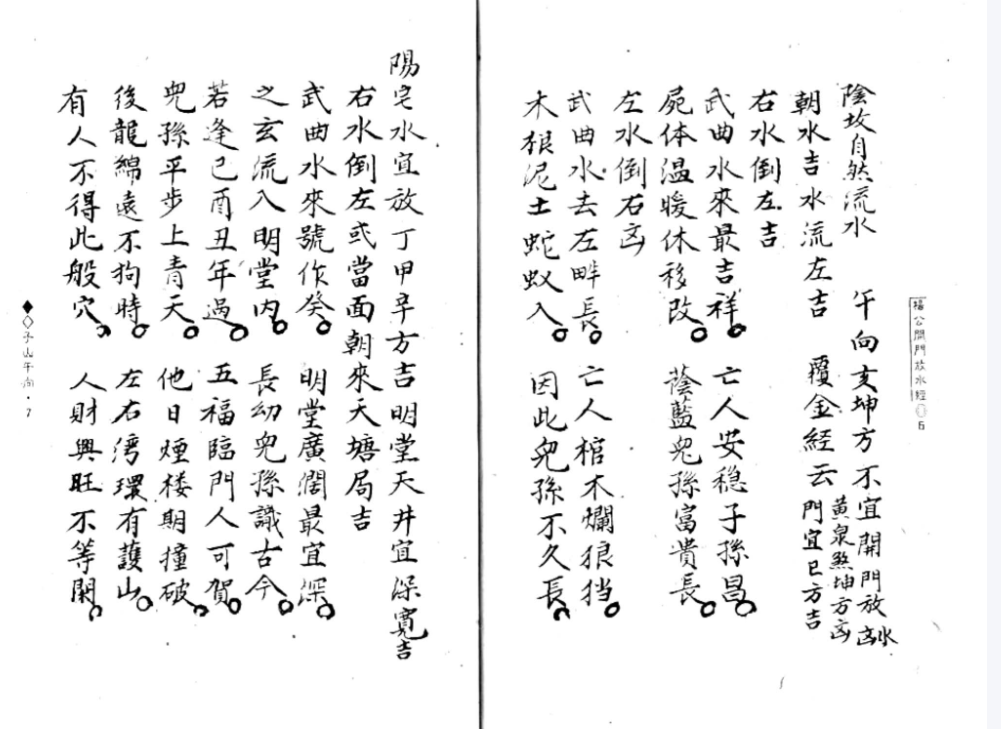 楊公開門放水經 6
陰坟自然流水 午向亥坤方不宜開門放水凶
黃泉煞坤方凶
朝水吉水流左吉 覆金經云 門宜巳方吉
右水倒左吉
武曲水來最吉祥。亡人安穩子孫昌。
屍体温暖休移改。蔭藍兒孫富貴長。
左水倒右凶
武曲水去左畔長。亡人棺木爛狼挡。
木狼泥土蛇蚁入。因此兒孫不久長。
陽宅水宜放丁甲辛方吉明堂天井宜深寬吉
右水倒左或當面朝來天塘局吉
武曲水來號作癸。明堂廣濶最宜深。
之玄流入明堂内。長幼兒孫識古今。
若逢巳酉丑年過。五福臨門人可賀。
兒孫平步上青天。他日煙楼期撞破。
後龍綿遠不狗時。左右湾環有護山。
有人不得此般穴。人財興旺不等閑。
◆◇子山午向・7